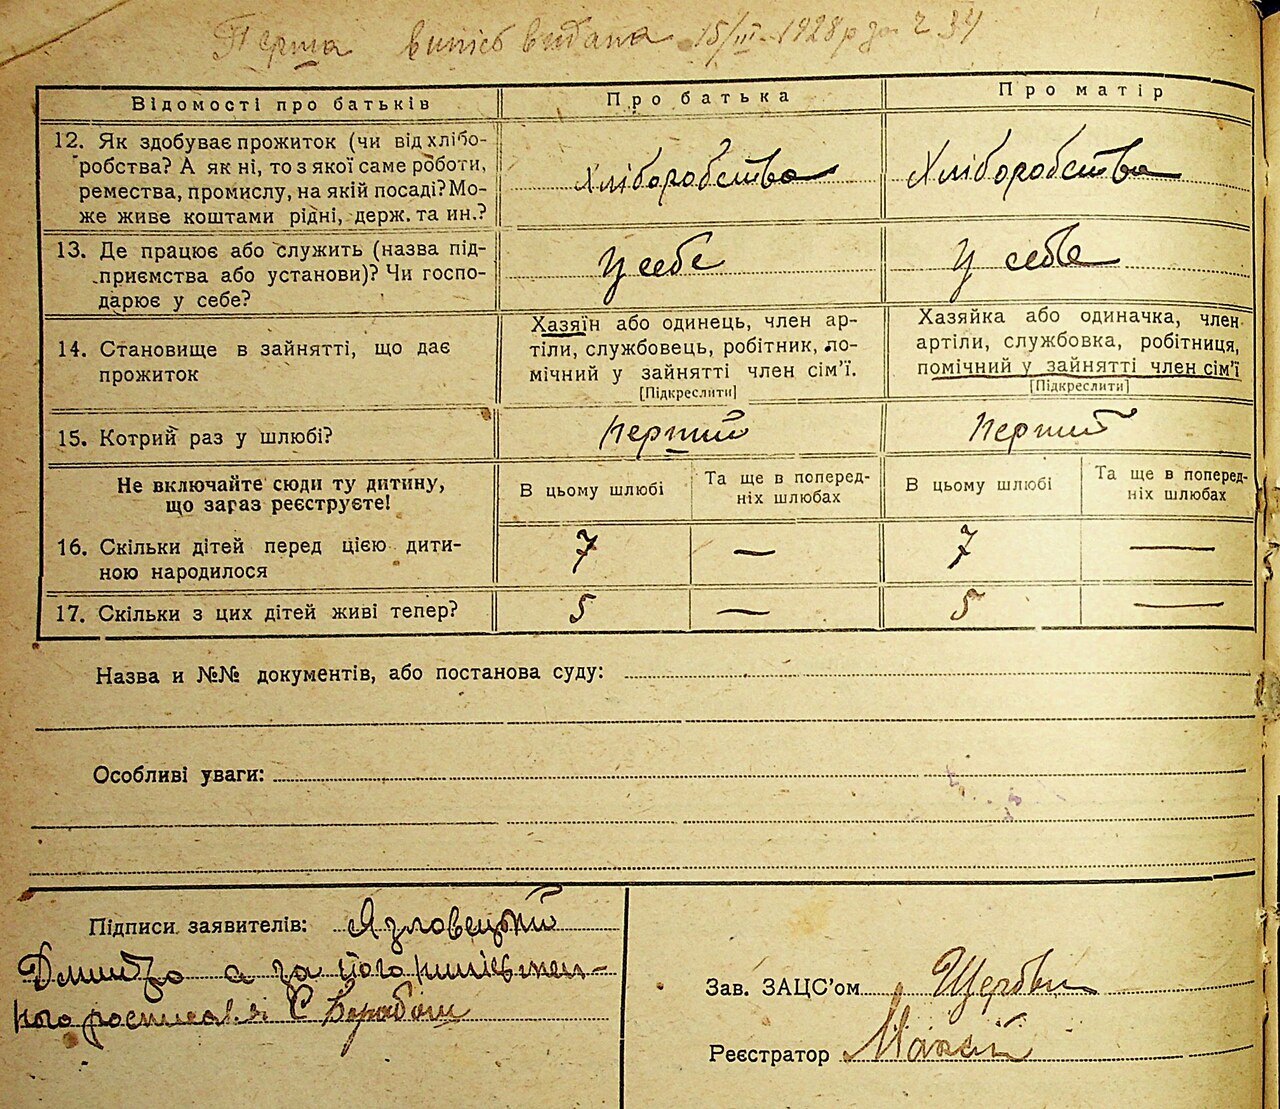 Перша випись видана 15/III 1928 р за Ч 34
Відомості про батьків
Про батька
Про матір
12. Як здобуває прожиток (чи від хлібо-
робства? А як ні, то з якої саме роботи,
ремества, промислу, на якій посаді? Мо-
же живе коштами рідні, держ. та ин.?
Хліборобства
Хліборобства
13. Де працює або служить (назва під-
приємства або установи)? Чи госпо-
дарює у себе?
У себе
У себе
14. Становище в зайнятті, що дає
прожиток
Хазяїн або одинець, член ар-
тіли, службовець, робітник, по-
мічний у зайнятті член сім’ї.
[Підкреслити]
Хазяйка або одиначка, член
артіли, службовка, робітниця,
помічний у зайнятті член сім’ї
[Підкреслити]
15. Котрий раз у шлюбі?
Перший
Перший
Не включайте сюди ту дитину,
що зараз реєструєте!
В цьому шлюбі
Та ще в поперед-
ніх шлюбах
В цьому шлюбі
Та ще в поперед-
ніх шлюбах
16. Скільки дітей перед цією дити-
ною народилося
7 — 7 —
17. Скільки з цих дітей живі тепер?
5 — 5 —
Назва и №№ документів, або постанова суду:
Особливі уваги:
Підписи заявителів: Язловецький
Дмитро а за його
росписався С
Зав. ЗАЦС’ом
Реєстратор